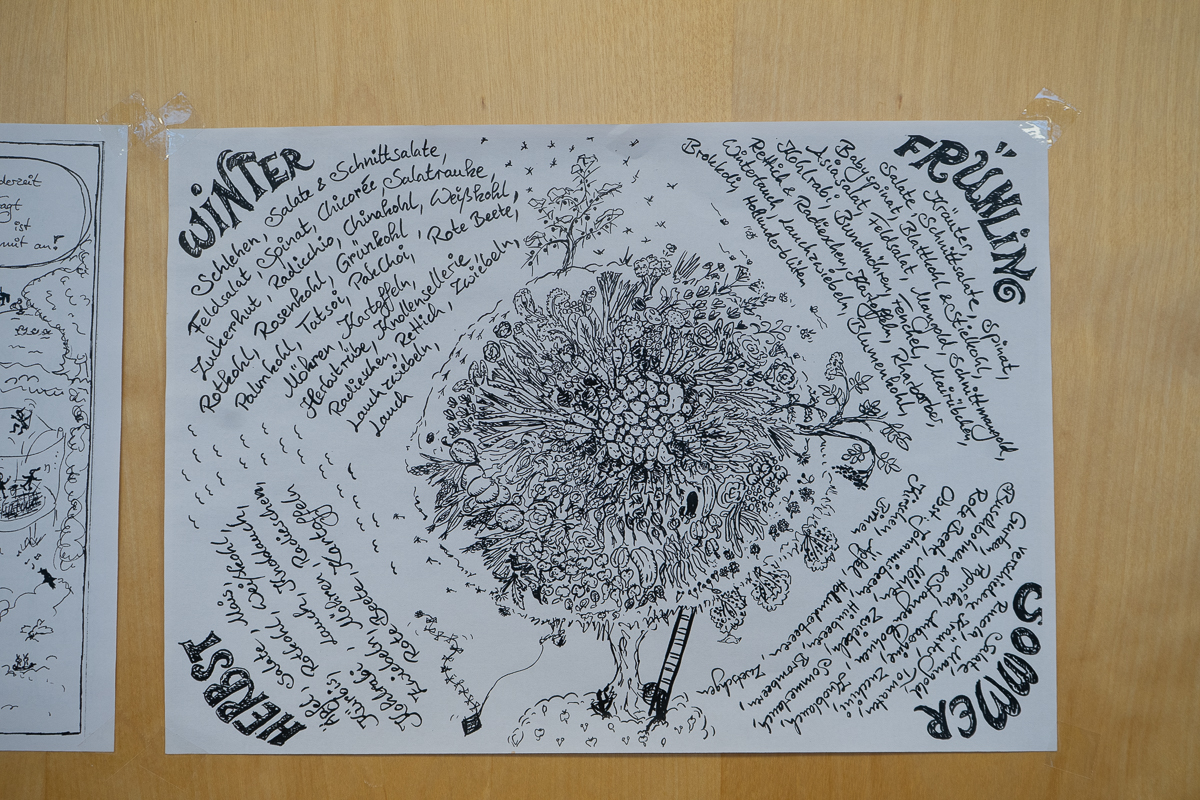 derzeit
agt
ist
mit an!
WINTER
Schlehen, Salate & Schnittsalate,
Feldsalat, Spinat, Chicorée Salatrauke,
Zuckerhut, Radicchio, Chinakohl, Weißkohl,
Rotkohl, Rosenkohl, Grünkohl, Rote Beete,
Palmkohl, Tatsoi, Pak Choi,
Möhren, Kartoffeln, Zwiebeln,
Herbstrübe, Knollensellerie
Radieschen, Rettich,
Lauchzwiebeln,
Lauch
FRÜHLING
Kräuter, Spinat,
Salate, Schnittsalate, Schnittmangold,
Babyspinat, Blattkohl & Stielkohl,
Asiasalat, Feldsalat, Mangold, Mairübchen,
Kohlrabi, Bundmöhren, Fenchel,
Rettich & Radieschen, Kartoffeln, Rharbarber,
Winterlauch, Lauchzwiebeln, Blumenkohl,
Brokkoli, Hollunderblüten
SOMMER
verschiedene Rucola, Salate, Mangold,
Gurken, Paprika, Kräuter, Tomaten,
Bundbohnen,
Rote Beete, Stangenbohnen, Zucchini,
Obst:
Möhre, Zwiebeln, Knoblauch,
Kirschen, Johannisbeeren, Himbeeren, Sommerlauch,
Birnen, Apfel, Hollunderbeeren, Brombeeren,
Zwetschgen
HERBST
Äpfel, Salate, Mais,
Kürbis, Rotkohl, Weißkohl,
Kohlrabi, Lauch, Knoblauch,
Zwiebeln, Möhren, Radieschen,
Rote Beete, Kartoffeln